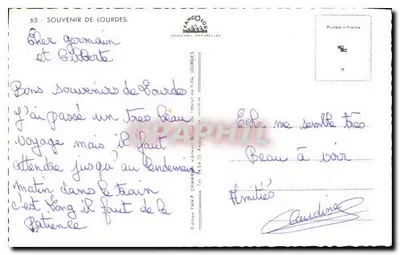 65 - SOUVENIR DE LOURDES.
COULEURS NATURELLES
Printed in France
Cher germain
et Gilberte
Bons souvenirs de Lourdes
J'ai passé un tres beau
voyage mais il faut
attendre jusqu'au lendemain
matin dans le train
c'est long il faut de la
Patience
Cela me semble tres
Beau à voir
Amitiés
Claudine